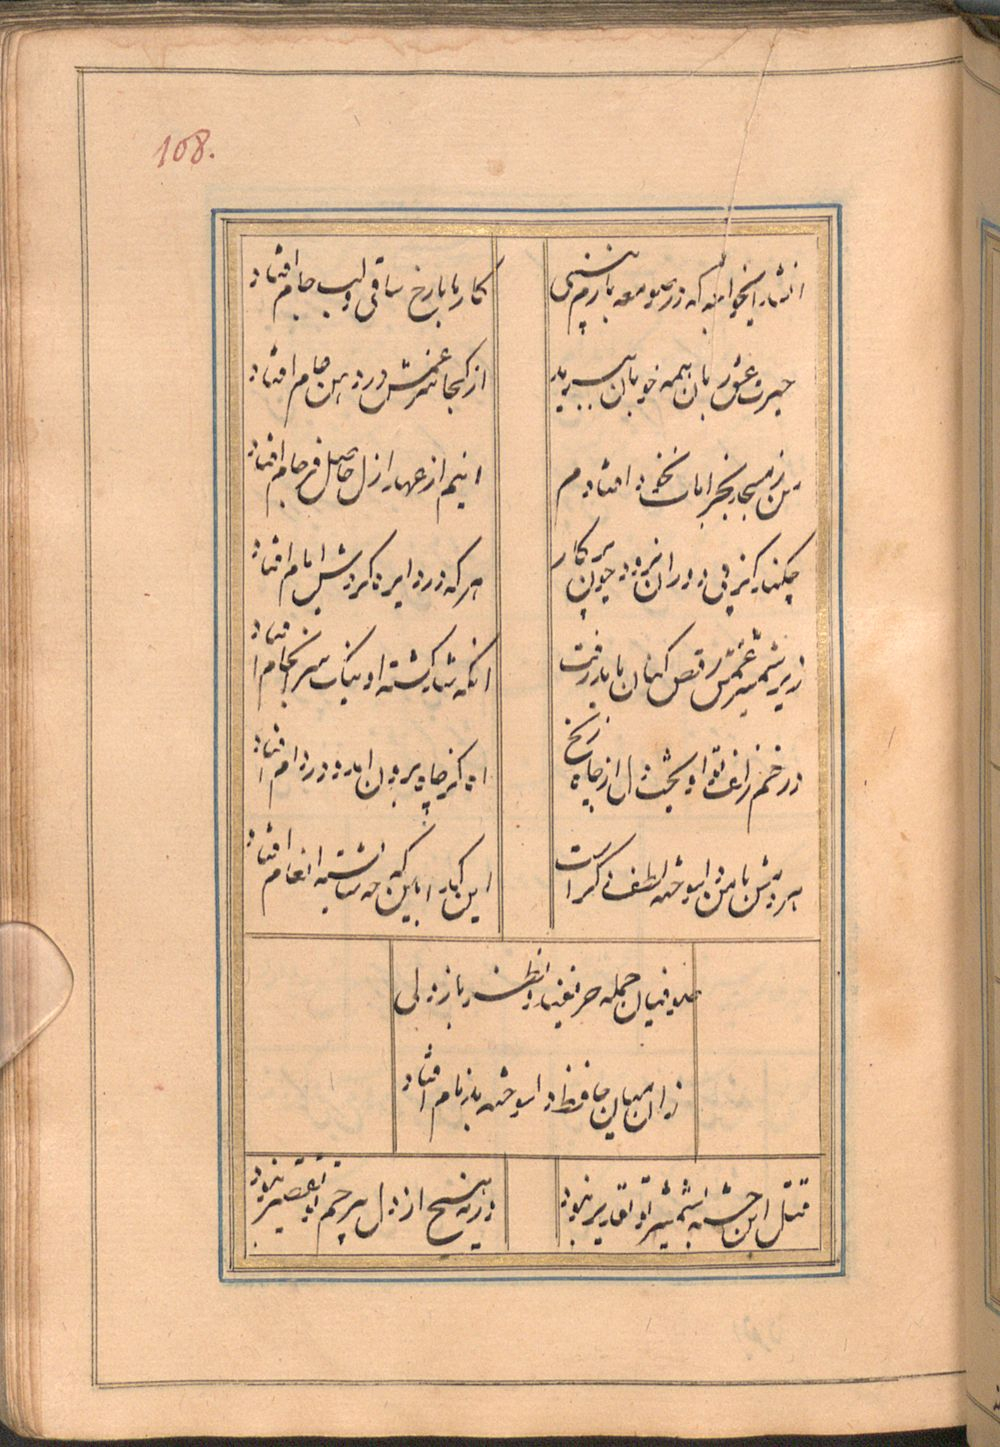 108.
آنشد ایخواجه که در صومعه بازم بینی
کار ما با رخ ساقی و لب جام افتاد
غیرت عشق زبان همه خوبان ببرید
از کجا سر غمش در دهن عام افتاد
من ز مسجد بخرابات نه خود افتادم
اینم از عهد ازل حاصل فرجام افتاد
چکند کز پی دوران نرود چون پرکار
هر که در دایره کردش ایام افتاد
زیر شمشیر غمش رقص کنان باید رفت
انکه شد کشته او نیک سرانجام افتاد
در خم زلف تو اویخت دل از چاه زنخ
اه کز چاه برون امد و در دام افتاد
هر دمش با من دلسوخته لطفی دکر است
این کدا بین که چه شایسته انعام افتاد
صوفیان جمله حریفند و نظرباز ولی
زان میان حافظ دلسوخته بدنام افتاد
قتل این خسته بشمشیر تو تقدیر نبود
ورنه هیچ از دل بیرحم تو تقصیر نبود